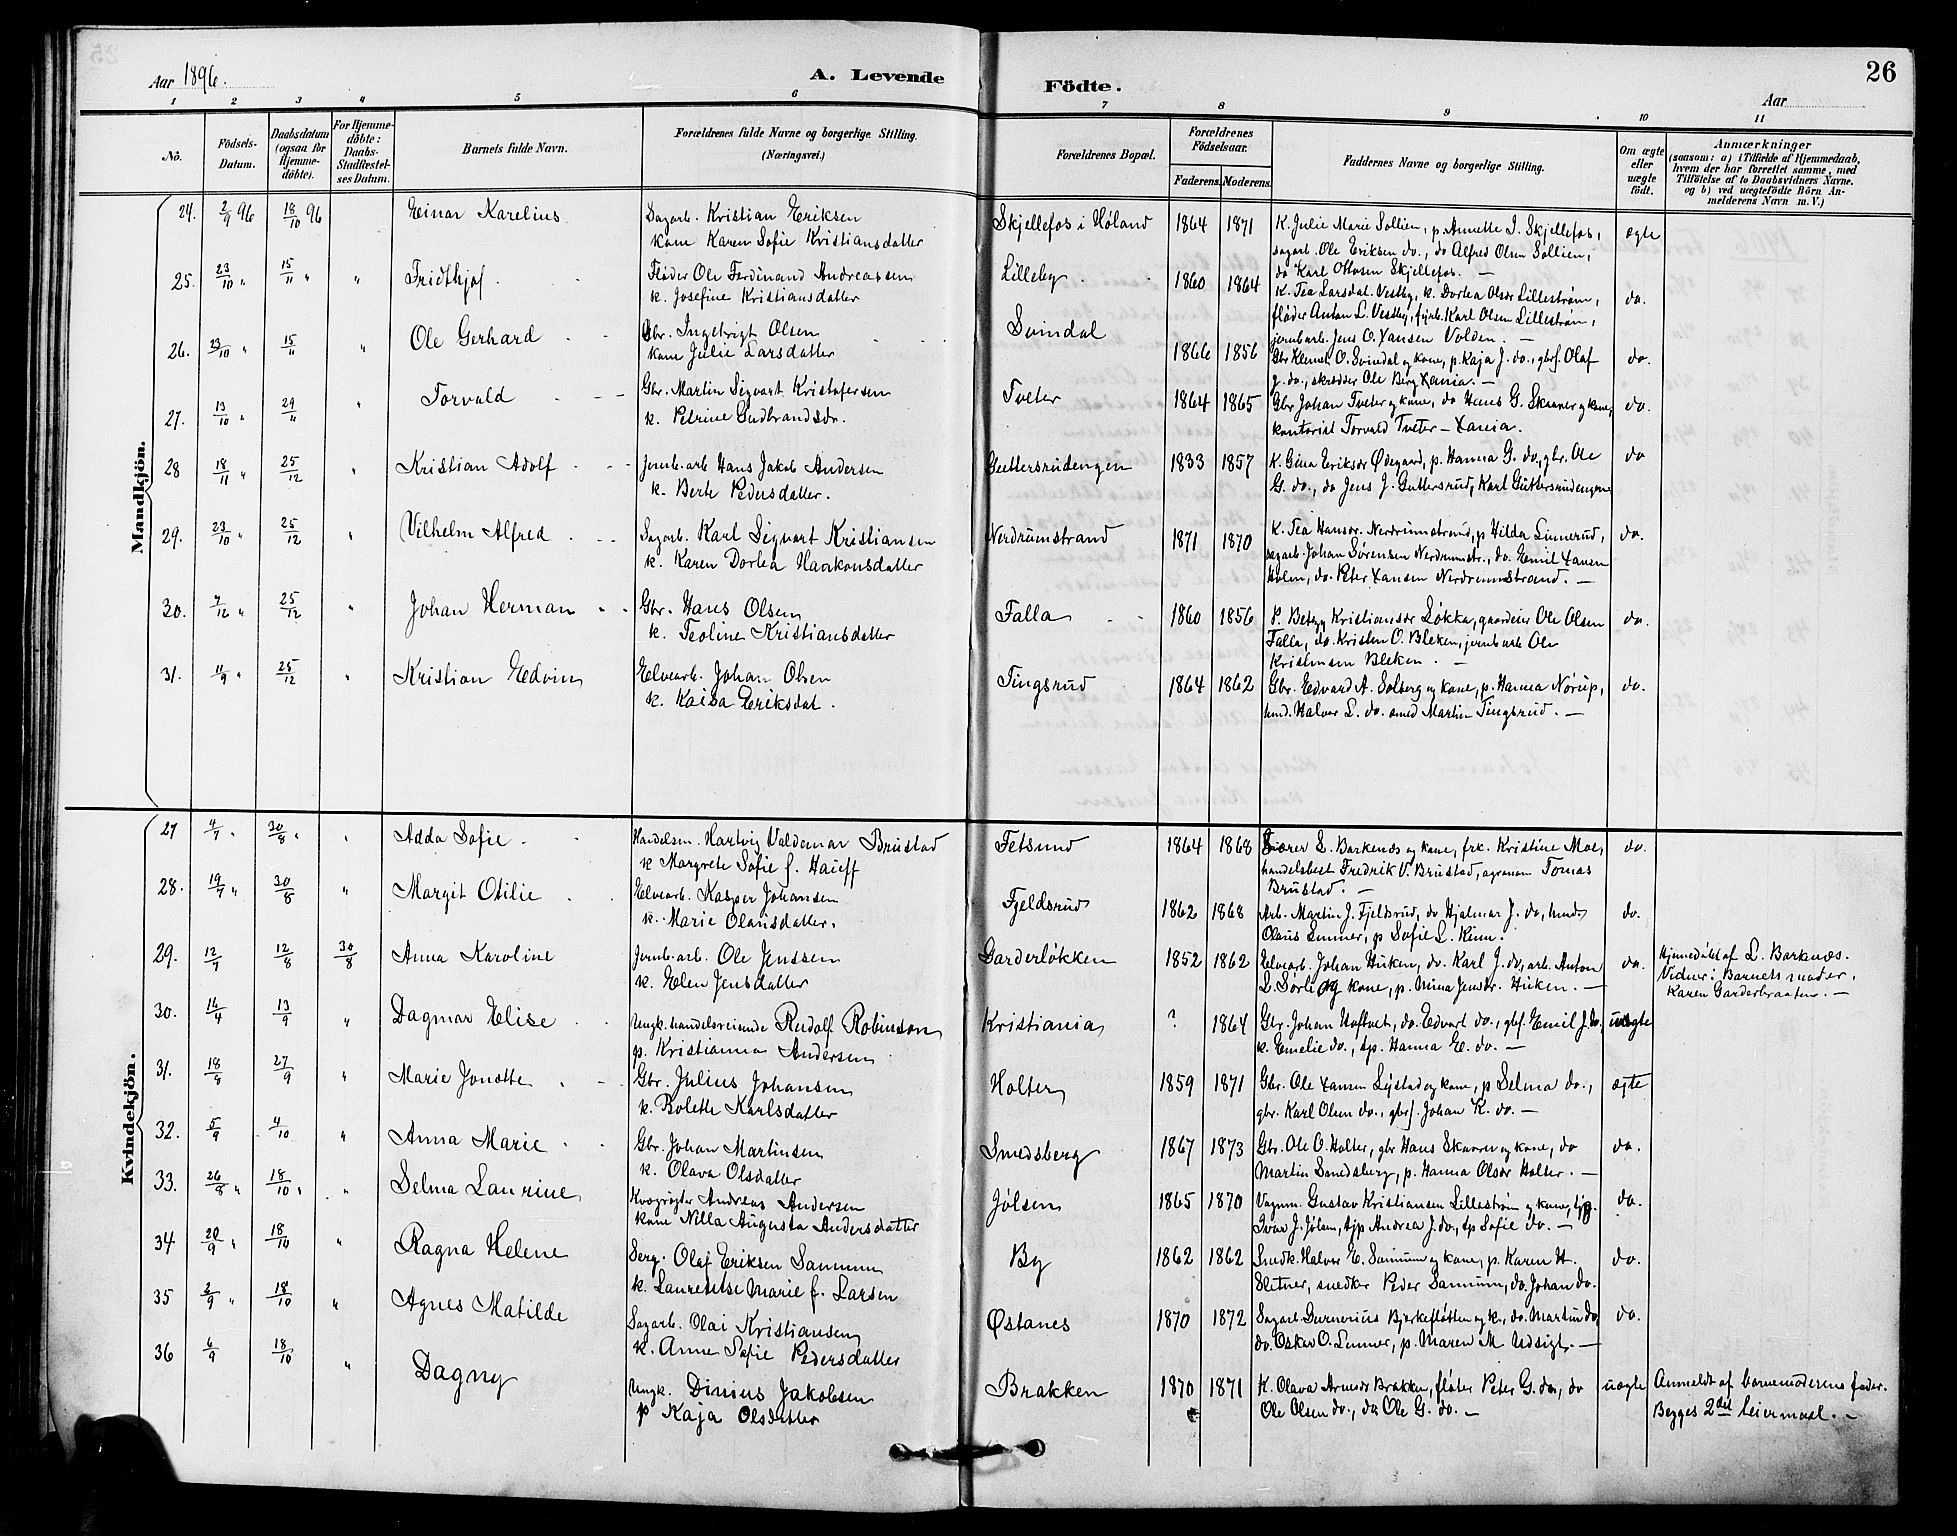 26
Aar 1896.
A. Levende
Födte.
Aar
1 2 3 4 5 6 7 8 9 10 11
No.
Födsels-Datum.
Daabsdatum (ogsaa för Hjemme-döbte).
For Hjemme-döbte: Daabs-Stadfæstel-ses Datum.
Barnets fulde Navn.
Forældrenes fulde Navne og borgerlige Stilling.
(Næringsvei.)
Forældrenes Bopæl.
Forældrenes Födselsaar.
Faderens. Moderens.
Faddernes Navne og borgerlige Stilling.
Om ægte eller uægte födt.
Anmærkninger
(saasom: a) i Tilfælde af Hjemmedaab,
hvem der har forrettet samme, med
Tilföielse af to Daabsvidners Navne.
og b) ved uægtefödte Börn An-
melderens Navn m. V.)
Mandkjön.
24. 2/9 96 18/10 96 Einar Karelius Sagarb. Kristian Eriksen Skjellefos i Høland 1864 1871 K. Julie Marie Sollien, p. Annette I. Skjellefos, ægte
kone Karen Sofie Kristiansdatter sagarb. Ole Eriksen do., do Alfred Olsen Sollien,
do Karl Ottosen Skjellefos. —
25. 23/10 " 15/11 " " Fridthjof Fløder Ole Ferdinand Andreassen Lilleby 1860 1864 K. Tea Larsdat. Vestby, k. Dorlea Olsdr Lillestrøm, do.
k. Josefine Kristiansdatter fløder Anton L. Vestby, fyrb. Karl Olsen Lillestrøm,
jernbarb. Jens O. Hansen Volden. —
26. 23/10 " 15/11 " Ole Gerhard Gbr. Ingebrigt Olsen Svindal 1866 1856 Gbr Klemet O. Svindal og kone, p. Kaja J. do., gbrs. Olaf do.
kone Julie Larsdatter J. do., skrædder Ole Berg Xania. —
27. 13/10 " 29/11 " Torvald Gbr. Martin Sigvart Kristofersen Tveter 1864 1865 Gbr Johan Tveter og kone, do Hans G. Skaaner og kone, do.
k. Petrine Gudbrandsdr. kontorist Torvald Tveter — Xania.
28 18/11 " 25/12 " Kristian Adolf Jernb. arb Hans Jakob Andersen Guttersrudengen 1833 1857 K. Gina Eriksdr Ødegaard, p. Hanna G. do., gbr. Ole do
k. Berte Pedersdatter. G. do., do Jens J. Guttersrud, Karl Guttersrudengen
29. 23/10 " 25/12 " Vilhelm Alfred Sagarb. Karl Sigvart Kristiansen Nerdrumstrand 1871 1870 K. Tea Hansdr. Nerdrumstrand, p Hilda Linnerud, do.
k. Karen Dorlea Haakonsdatter sagarb. Johan Sørensen Nerdrumstr., do. Emil Hansen
Holm, do. Peter Hansen Nerdrumstrand. —
30. 7/12 " 25/12 " Johan Herman Gbr. Hans Olsen Falla 1860 1856 P. Betzy Kristiansdr Løkka, gaardeier Ole Olsen do.
k. Teoline Kristiansdatter Falla, do. Kristen O. Bleken, jernb arb Ole
Kristensen Bleken. —
31. 11/9 " 25/12 " Kristian Edvin Elvearb. Johan Olsen Tingsrud 1864 1862 Gbr. Edvard A. Solberg og kone, p. Hanna Nørup, do.
k. Kaisa Eriksdat. hmd. Halvor L. do. smed Martin Tingsrud. —
Kvindekjön.
27 4/7 " 30/8 " " Adda Sofie Handelsm. Hartvig Valdemar Brustad Fetsund 1864 1868 L. Barkenæs og kone, frk. Kristine Moe, do.
k Margrete Sofie f. Haieff handelsbest Fredrik V. Brustad, agronom Tomas
Brustad. —
28. 19/7 " 30/8 " Margit Otilie Elvearb. Kasper Johansen Fjeldsrud 1862 1868 Arb. Martin J. Fjeldsrud, do Hjalmar J. do, hmd do.
k. Marie Olausdatter. Olaus Linner, p Sofie L. Riim.
29. 12/7 12/8 30/8 Anna Karoline Jernb. arb. Ole Jenssen Garderløkken 1852 1862 Elvearb. Johan Huken, do. Karl J. do, arb. Anton do. Hjemmedøbt af L. Barknæs.
k. Elen Jensdatter L. Sørli og kone, p. Mina Jensdr. Huken. — Vidner: Barnets moder,
Karen Garderbraaten. —
30. 14/4 13/9 " Dagmar Elise Ungk. handelsreisende Rudolf Robinson Kristiania ? 1864 Gbr. Johan Hoftvet, do. Edvart do., gbs. Emil J. do. uægte
p. Kristianna Andersen k. Emelie do., tp. Hanna E. do. —
31. 18/8 27/9 " Marie Jonette Gbr. Julius Johansen Holter 1859 1871 Gbr. Ole Hansen Lystad og kone, p Selma do., ægte
k. Bolette Karlsdatter gbr. Karl Olsen do., gbrs. Johan K. do. —
32. 5/9 4/10 " Anna Marie Gbr. Johan Martinsen Smedsberg 1867 1873 Gbr. Ole O. Holter, gbr Hans Skaaner og kone, do do.
k. Olava Olsdatter Martin Smedsberg, p. Hanna Olsdr Holter. —
33. 26/8 " 18/10 " " Selma Laurine Kvægrøgter Andreas Andersen Jølsen 1865 1870 Vognm. Gustav Kristiansen Lillestrøm og kone, tjg. do.
kone Nilla Augusta Andersdatter Ivar J. Jølsen, tjp Andrea J. do., tp Sofie do. —
34 20/9 " 18/10 " Ragna Helene Serg. Olaf Eriksen Sannum By 1862 1862 Snedk. Halvor E. Sannum og kone, p. Karen H. do.
k. Laurentse Marie f. Larsen Sletner, snedker Peder Sannum, do. Johan do.
35 2/9 " 18/10 " Agnes Matilde Sagarb. Olai Kristiansen Østanes 1870 1872 Sagarb Gunerius Bjerkefløtten og k., do. Martin do do.
k. Anne Sofie Pedersdatter do. Oskar O. Linner, p. Maren M Udsigt. —
36 6/9 18/10 " Dagny Ungk. Dinius Jakobsen Brakken 1870 1871 K. Olava Arnesdr Brakken, fløter Peter G. do, do uægte Anmeldt af barnemoderens fader.
p Kaja Olsdatter Ole Olsen do., do. Ole G. do. — Begges 2det leiermaal. —